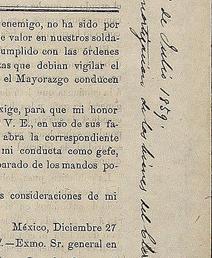 enemigo, no ha sido por
e valor en nuestros solda-
umplido con las órdenes
zas que debian vigilar el
e el Mayorazgo conducen
xige, para que mi honor
V. E., en uso de sus fa-
abra la correspondiente
mi conducta como gefe,
parado de los mandos po-
s consideraciones de mi
México, Diciembre 27
.—Exmo. Sr. general en
de Julio 1859.
de los bienes del Cler